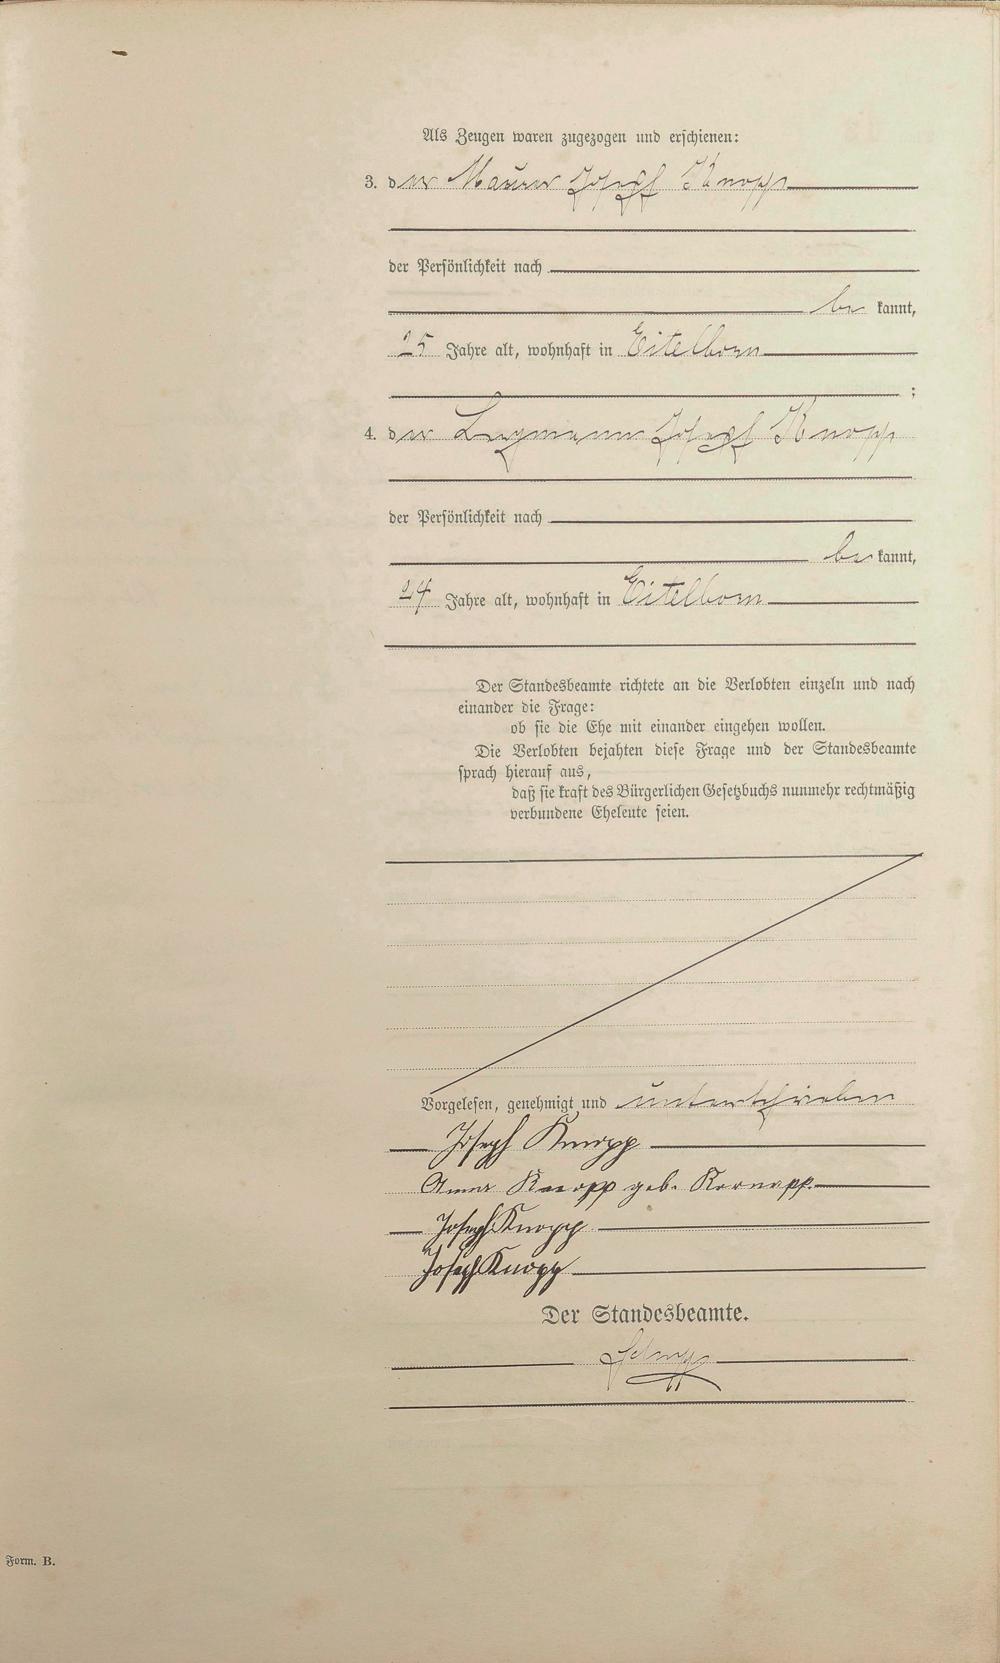 Als Zeugen waren zugezogen und erschienen:
3. der Maurer Josef Knopp
der Persönlichkeit nach
be kannt,
25 Jahre alt, wohnhaft in Eitelborn
;
4. der Josef Knopp
der Persönlichkeit nach
be kannt,
24 Jahre alt, wohnhaft in Eitelborn
Der Standesbeamte richtete an die Verlobten einzeln und nach
einander die Frage:
ob sie die Ehe mit einander eingehen wollen.
Die Verlobten bejahten diese Frage und der Standesbeamte
sprach hierauf aus,
daß sie kraft des Bürgerlichen Gesetzbuchs nunmehr rechtmäßig
verbundene Eheleute seien.
Vorgelesen, genehmigt und unterschrieben
Joseph Knopp
Anna Knopp geb.
Joseph Knopp
Joseph Knopp
Der Standesbeamte.
Form. B.